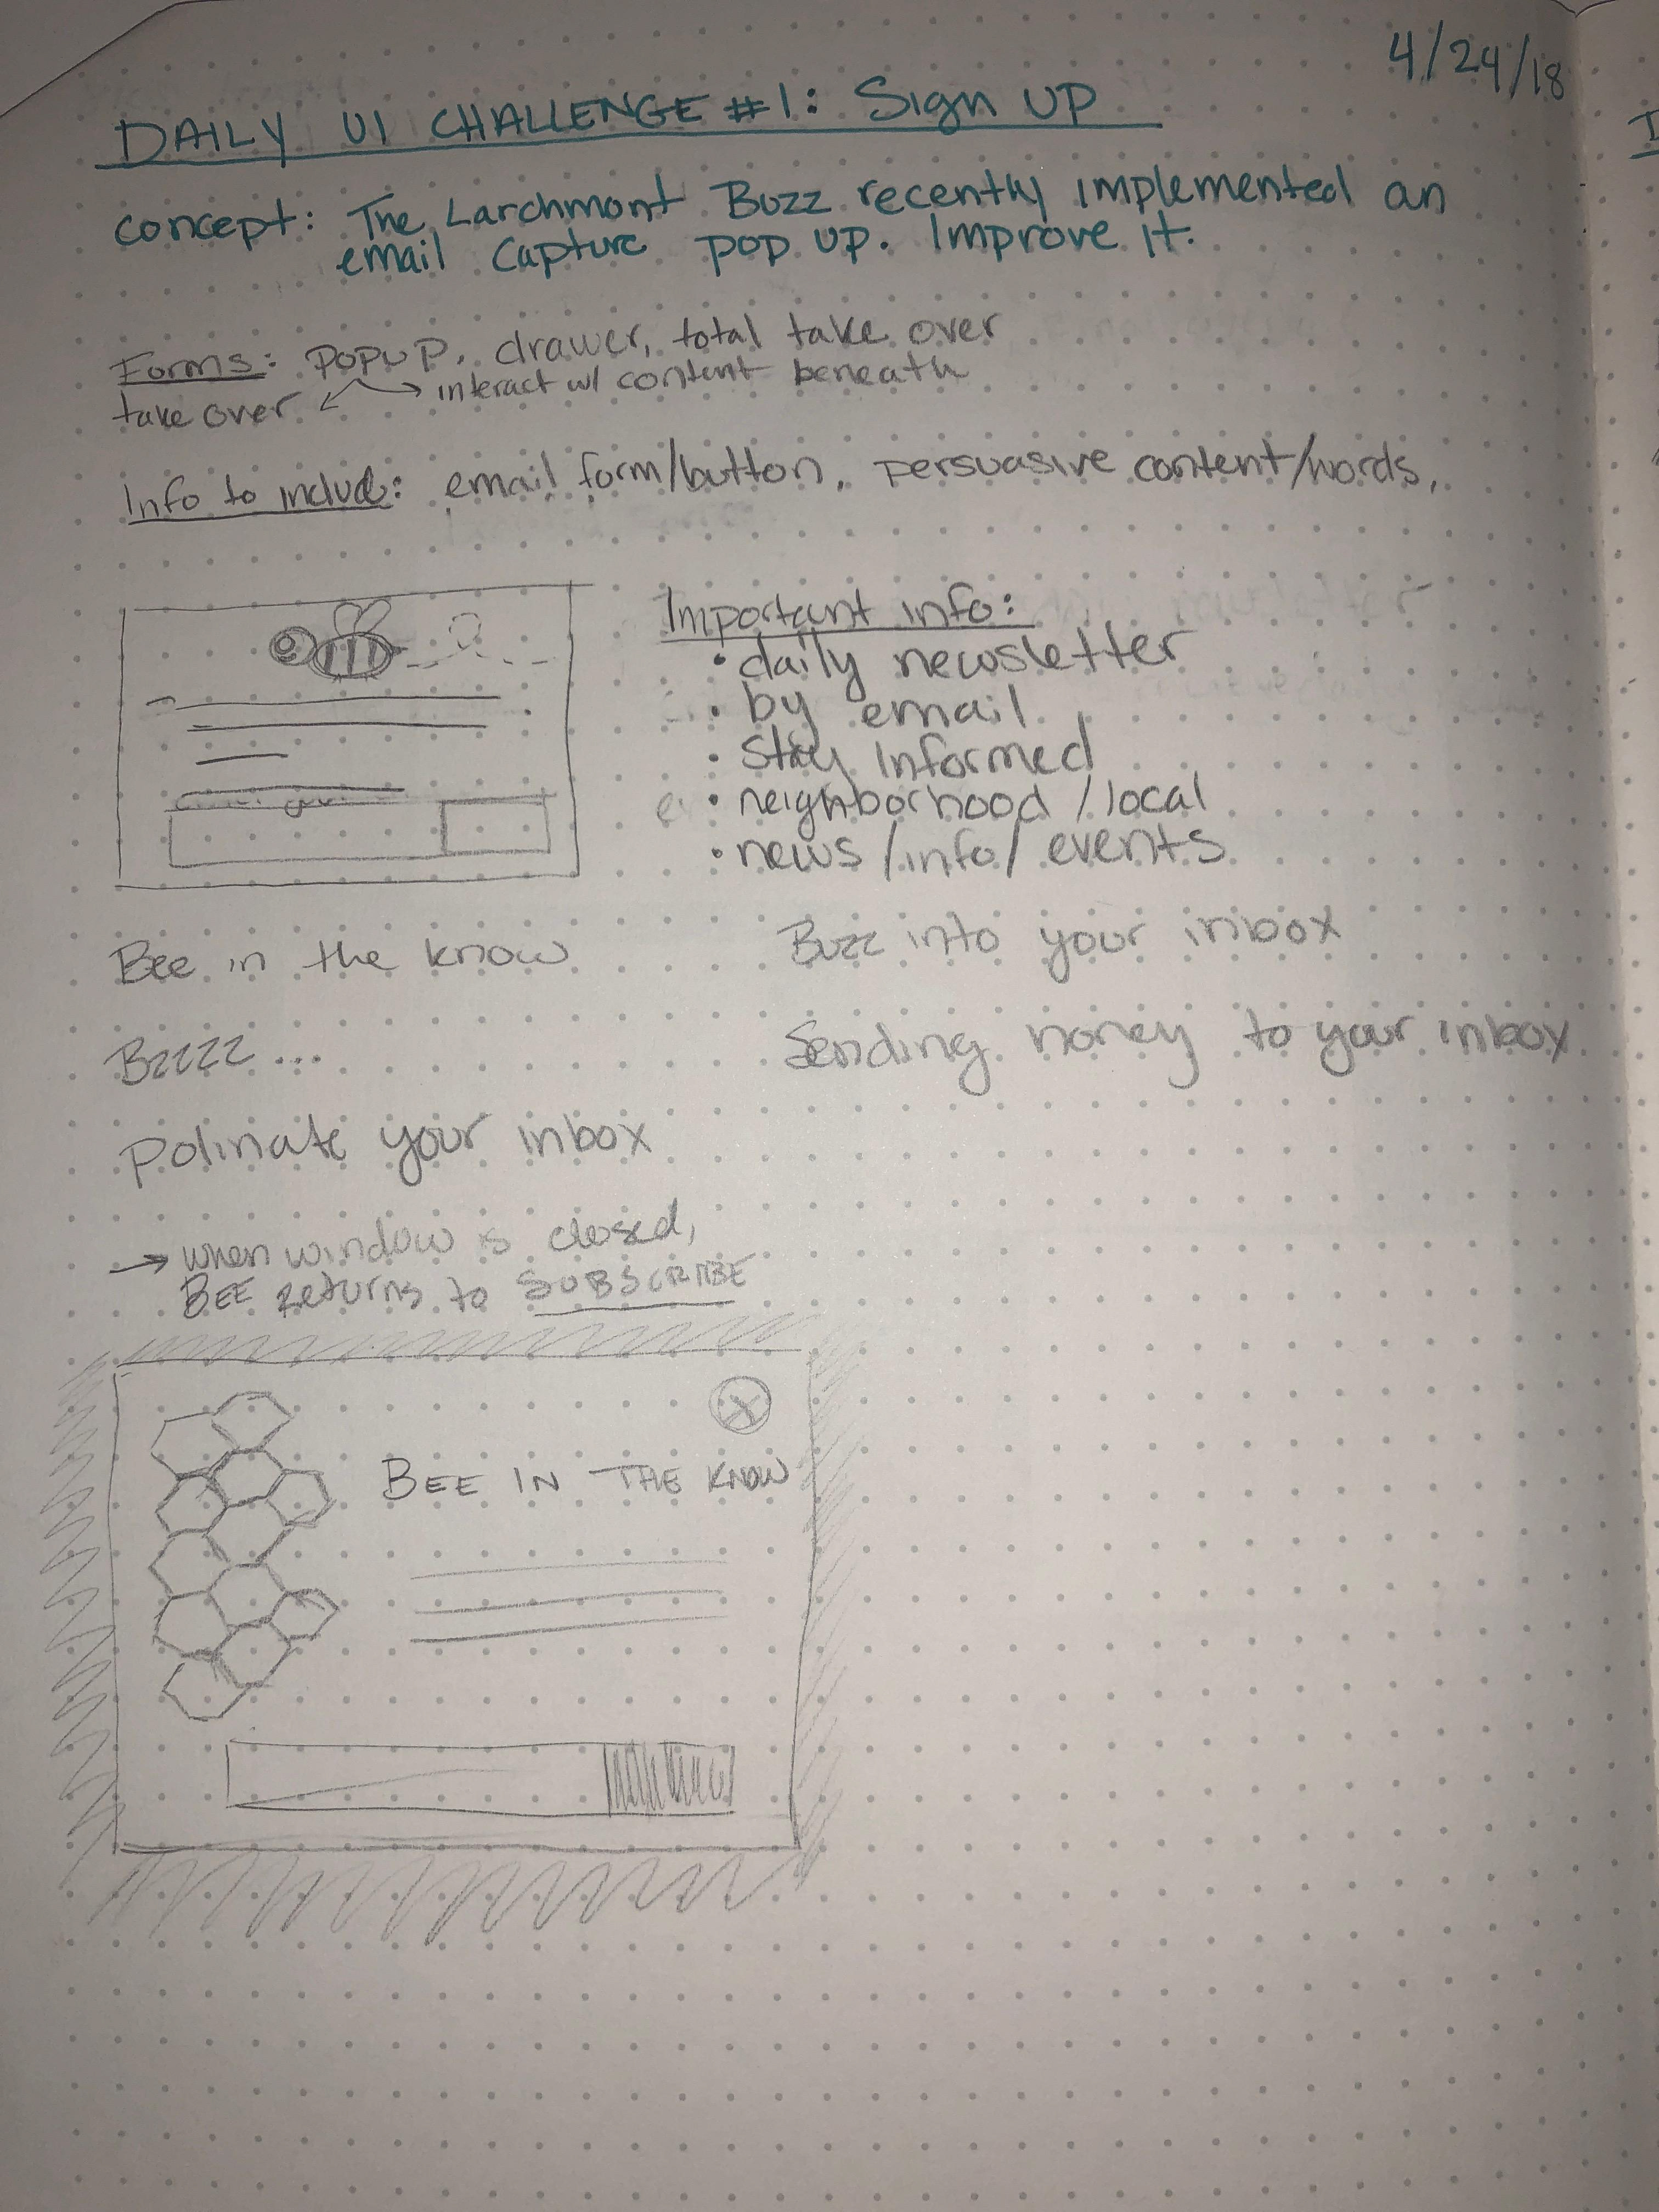 4/24/18
DAILY UI CHALLENGE #1: Sign UP
concept: The Larchmont Buzz recently implemented an
email capture pop up. Improve it.
Forms: POPUP, drawer, total take over
interact w/ content beneath
take over
Info to include: email form/button, persuasive content/words,
Important info:
• daily newsletter
• by email
• Stay Informed
• neighborhood / local
• news / info / events
Bee in the know
Buzz into your inbox
Bzzzz...
Sending honey to your inbox
Polinate your inbox
→ when window is closed,
BEE returns to SUBSCRIBE
X
BEE IN THE KNOW